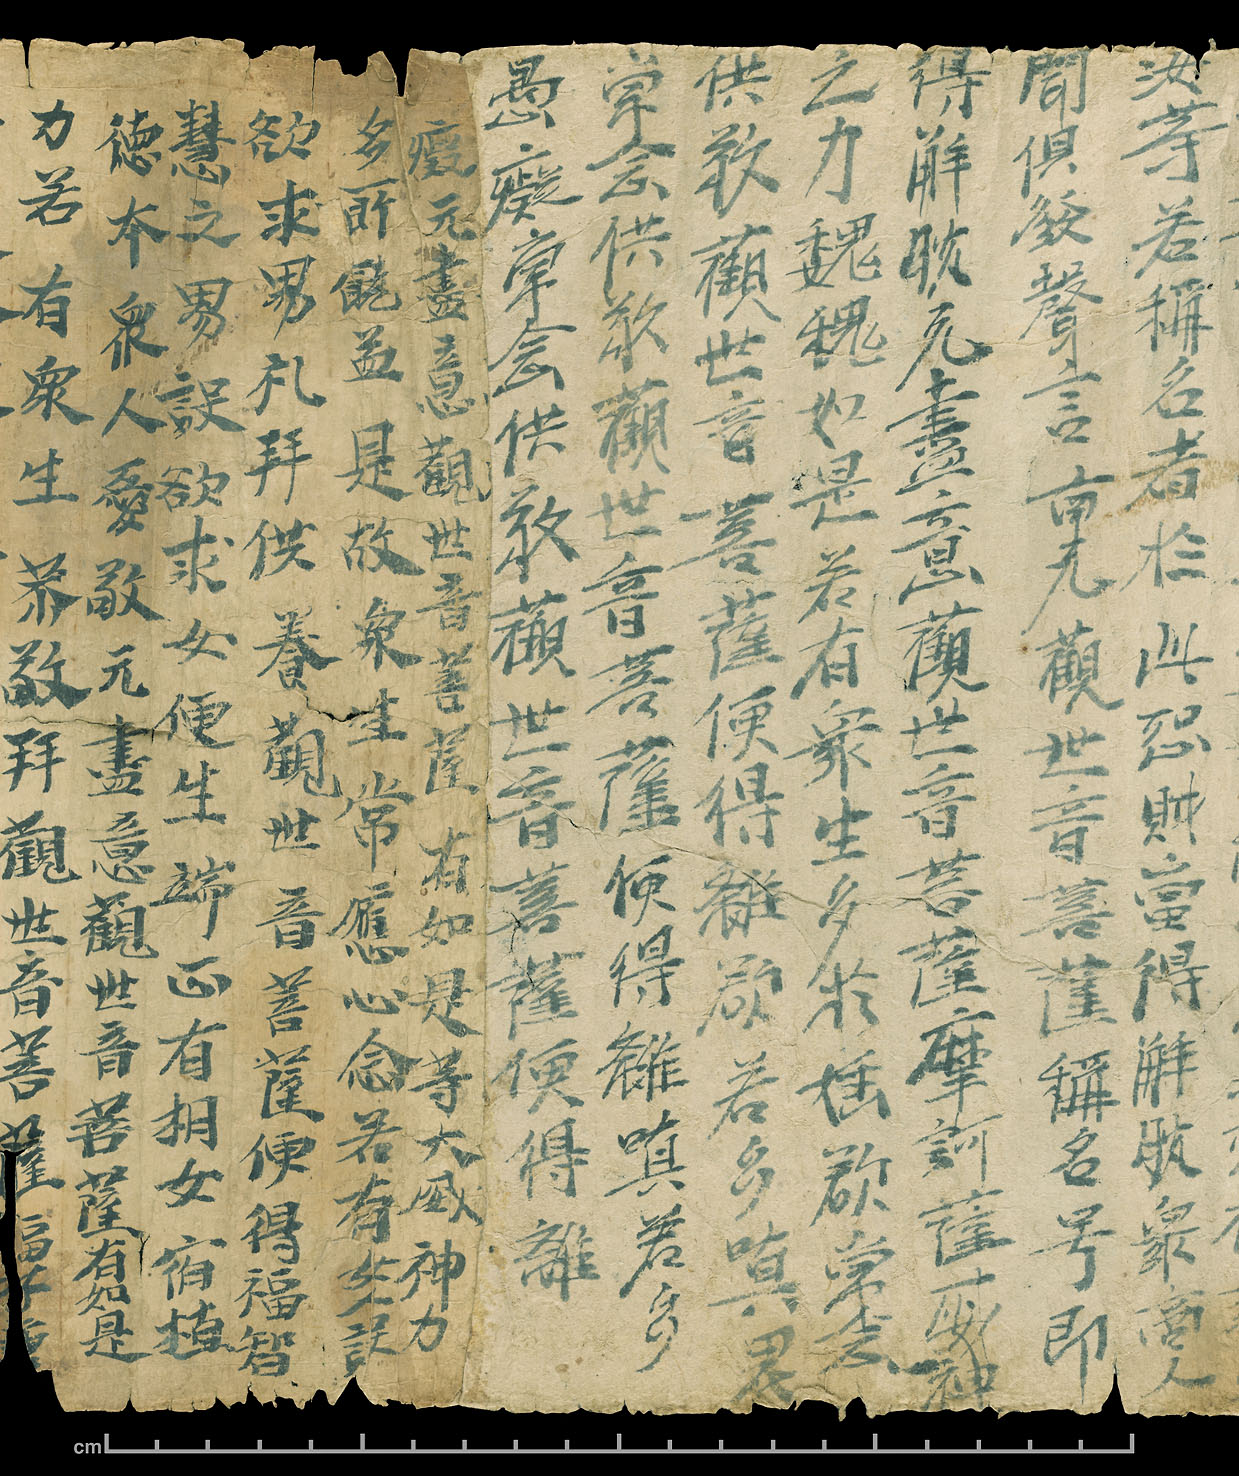 汝等若稱名者於此怨賊當得解脫衆商人
聞俱發聲言南无觀世音菩薩稱名号即
得解脫无盡意觀世音菩薩摩訶薩威神
之力巍巍如是若有衆生多於婬欲常念
供敬觀世音菩薩便得離欲若多嗔恚
常念供敬觀世音菩薩便得離嗔若多
愚癡常念供敬觀世音菩薩便得離
癡无盡意觀世音菩薩有如是等大威神力
多所饒益是故衆生常應心念若有
欲求男礼拜供養觀世音菩薩便得福智
慧之男設欲求女便生端正有相女宿植
德本衆人愛敬无盡意觀世音菩薩有如是
力若有衆生恭敬礼拜觀世音菩薩福不